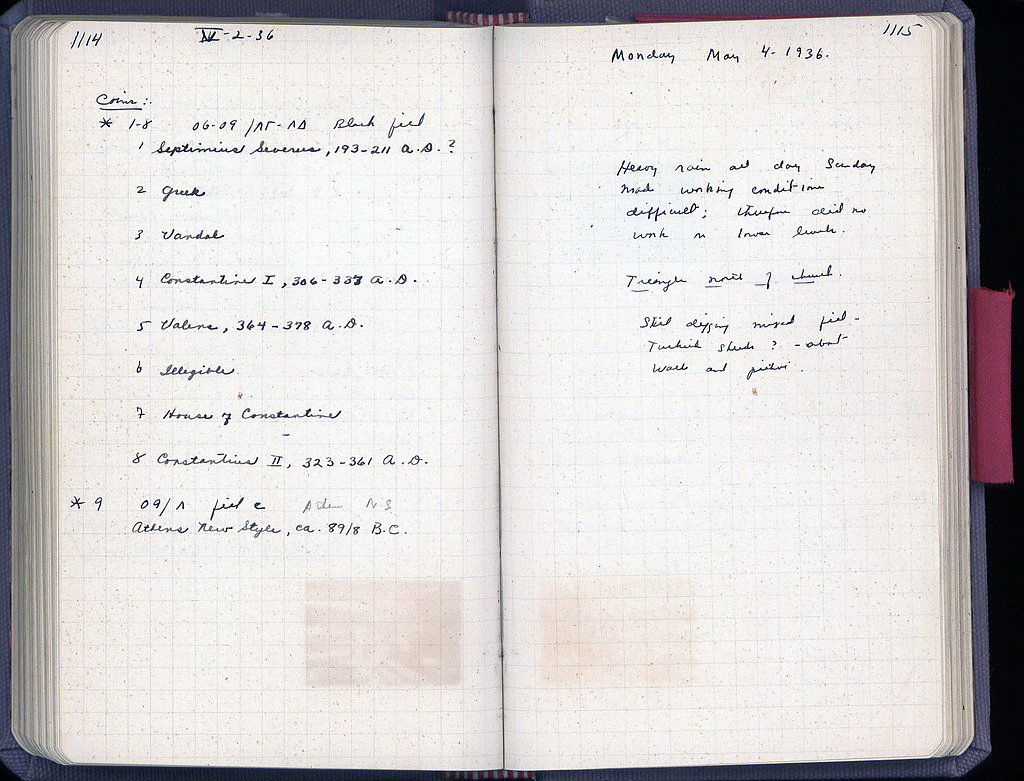 1114
IV-2-36
Coins:
* 1-8 06-09/ΛΓ-ΛΔ Black fill
1 Septimius Severus, 193-211 A.D. ?
2 Greek
3 Vandal
4 Constantine I, 306-337 A.D.
5 Valens, 364-378 A.D.
6 Illegible
7 House of Constantine
8 Constantius II, 323-361 A.D.
* 9 09/Λ fill c Athen N.S
Athens New Style, ca. 89/8 B.C.
1115
Monday May 4-1936.
Heavy rain all day Sunday
made working conditions
difficult; therefore did no
work in lower levels.
Triangle north of church.
Still digging mixed fill-
Turkish sherds ? - about
walls and pithoi.